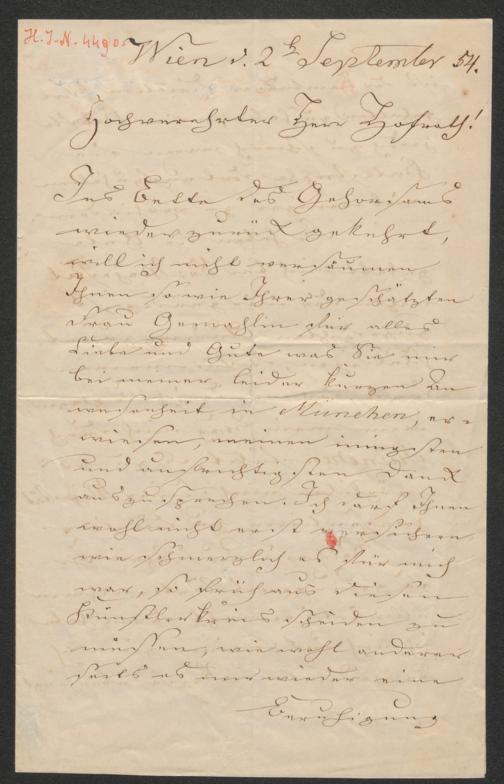 H. I. N. 4490
Wien d. 2t September 54.
Hochverehrter Herr Hofrath!
Ins Bette des Gehorsams
wieder zurück gekehrt,
will ich nicht versäumen
Ihnen so wie Ihrer geschätzten
Frau Gemahlin für alles
Liebe und Gute was Sie mir
bei meiner leider kurzen An
wesenheit in München, er=
wiesen, meinen innigsten
und aufrichtigsten Dank
auszusprechen. Ich darf Ihnen
wohl nicht erst versichern
wie schmerzlich es für mich
war, so früh aus diesem
Künstlerkreis scheiden zu
müssen, wie wohl anderer
seits es mir wieder eine
Beruhigung